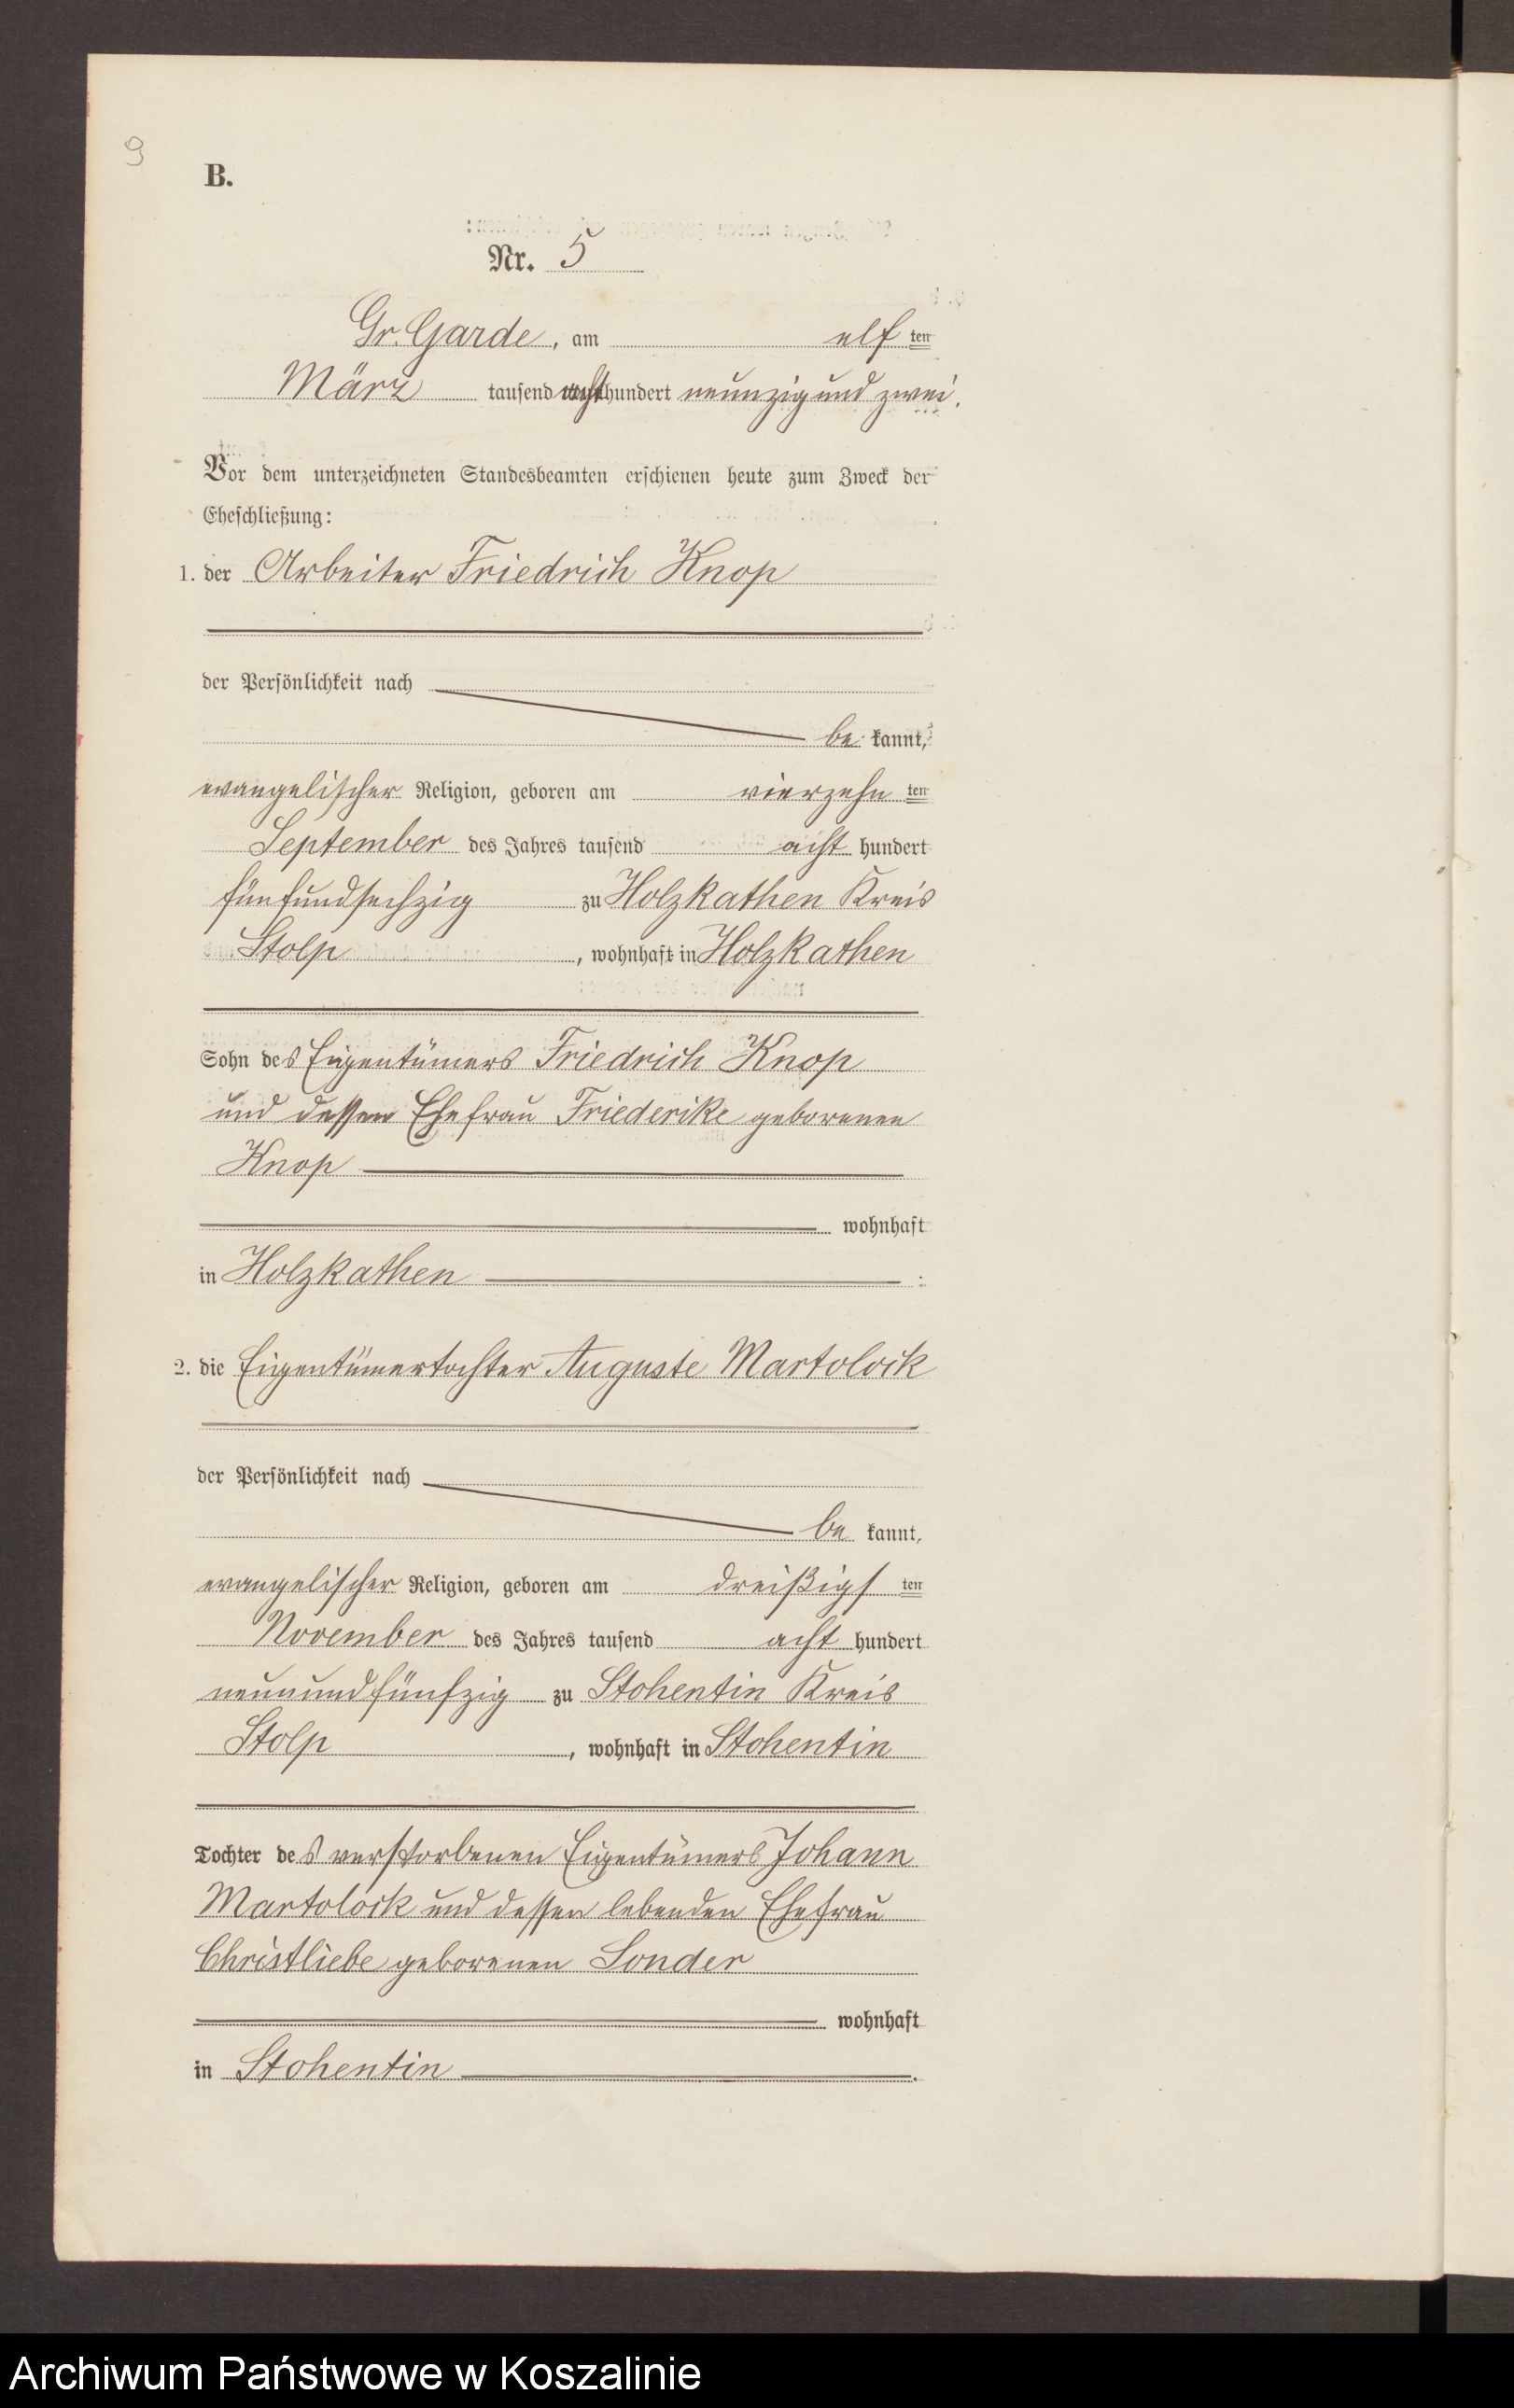 9
B.
Nr. 5
Gr. Garde, am elf ten
März tausend acht hundert neunzig und zwei.
Vor dem unterzeichneten Standesbeamten erschienen heute zum Zweck der
Eheschließung:
1. der Arbeiter Friedrich Knop
der Persönlichkeit nach
be kannt,
evangelischer Religion, geboren am vierzehn ten
September des Jahres tausend acht hundert
fünfundsechzig zu Holzkathen Kreis
Stolp, wohnhaft in Holzkathen
Sohn des Eigentümers Friedrich Knop
und dessen Ehefrau Friederike geborenen
Knop
wohnhaft
in Holzkathen
2. die Eigentümertochter Auguste Martolock
der Persönlichkeit nach
be kannt,
evangelischer Religion, geboren am dreißigs ten
November des Jahres tausend acht hundert
neunundfünfzig zu Stohentin Kreis
Stolp, wohnhaft in Stohentin
Tochter des verstorbenen Eigentümers Johann
Martolock und dessen lebenden Ehefrau
Christliebe geborenen Sonder
wohnhaft
in Stohentin.
Archiwum Państwowe w Koszalinie